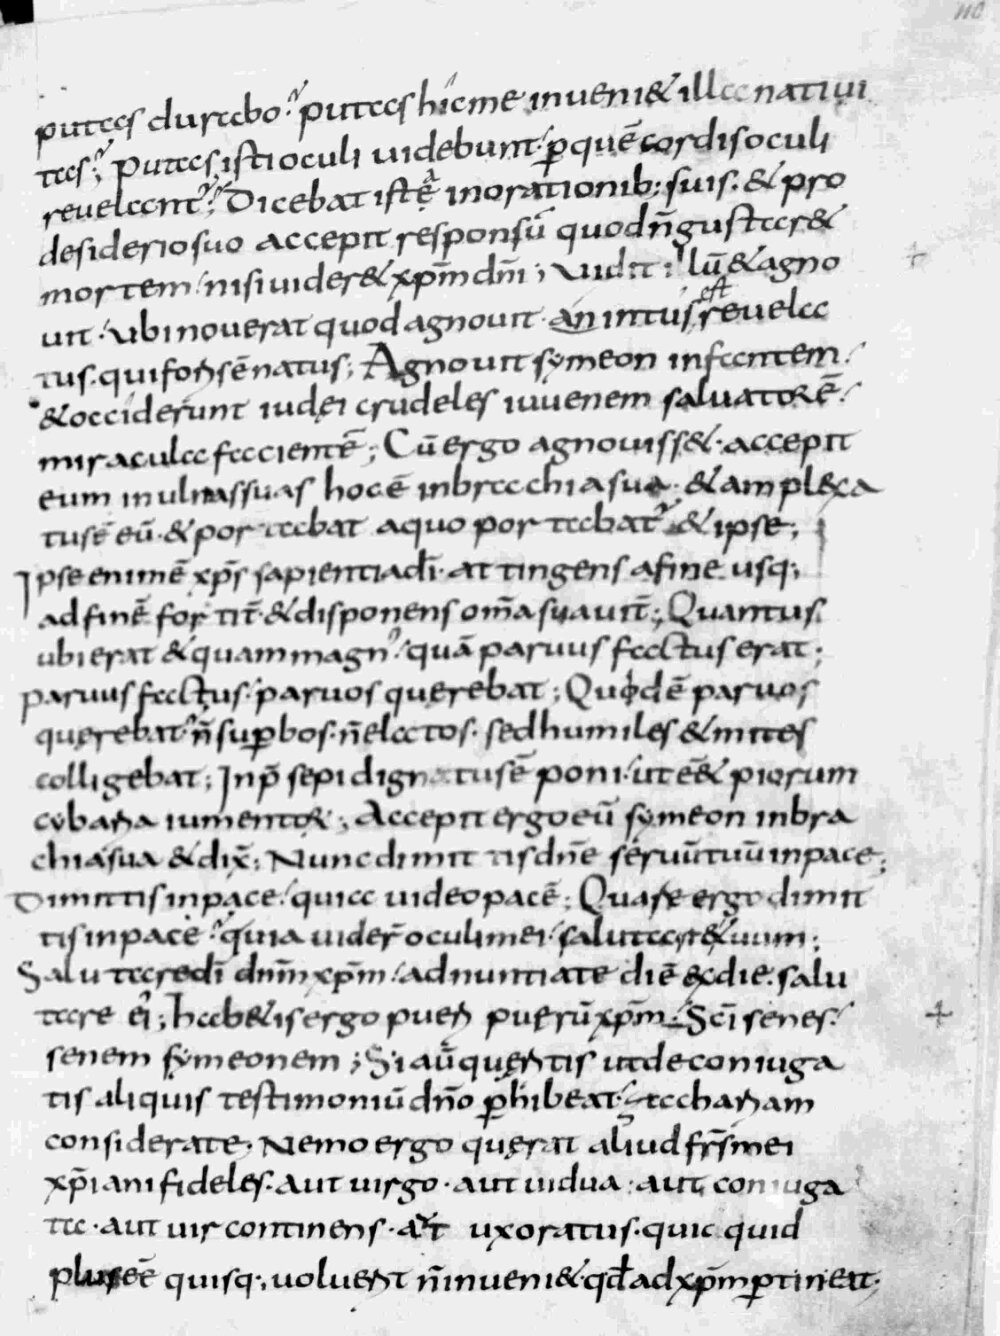 putas durabo? putas hic me inueni& illa natiui
tas; Putas isti oculi uidebunt; p̱ quē cordis oculi
reuelantʼ; Dicebat ista in orationib; suis. & pro
desiderio suo accepit responsū quod ñ gustar&
mortem nisi uider& xp̄m dm̄; Vidit illū & agno
uit. Ubi nouerat quod agnouit. an intus ē reuela
tus. qui foris ē natus; Agnouit symeon infantem.
& occiderunt iudęi crudeles iuuenem saluatorē.
miracula facientē; Cū ergo agnouiss&. accepit
eum in ulnas suas hoc ē in brachia sua. & amplexa
tus ē eū. & portabat a quo portabatʼ & ipse;
Ipse enim ē xp̄s sapientia dī. attingens a fine usq;
ad finē fortit̄. & disponens om̄a suauit̄; Quantus
ubi erat & quam magnʼ. quā paruus factus erat;
paruus factus. paruos querebat; Quod ē paruos
querebat ñ sup̱bos. ñ elatos. sed humiles & mites
colligebat; In p̄sepi dignatus ē poni. ut ē& piorum
cybaria iumentoꝝ; Accepit ergo eū symeon in bra
chia sua & dix̄; Nunc dimittis dn̄e seruū tuū in pace;
Dimittis in pace. quia uideo pacē; Quare ergo dimit
tis in pace? quia uider̄ oculi mei salutare tuum;
Salutare dī dn̄m xp̄m. adnuntiate diē ex die. salu
tare eiʼ; Habetis ergo pueri puerū xp̄m. Sc̄i senes.
senem symeonem; Si aū queritis ut de coniuga
tis aliquis testimoniū dn̄o p̱hibeat. zachariam
considerate. Nemo ergo querat aliud fr̄s mei
xp̄iani fideles. aut uirgo. aut uidua. aut coniuga
ta. aut uir continens. aut uxoratus. quic quid
plus eē quisq; uoluerit ñ inueni& qđ ad xp̄m p̱tineat;